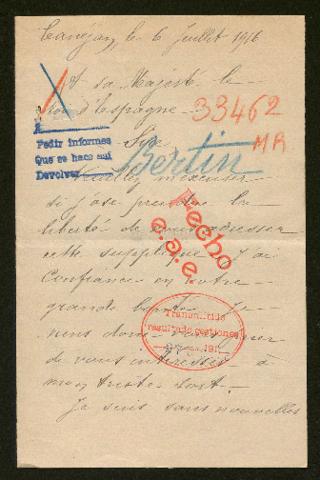 le 6 Juillet 1916
A sa Majesté le
Roi d'Espagne
33462
MR
A
Pedir informes
Que se hace aui
Devolver
Sire
Bertin
Veuillez m'excuser
si j'ose prendre la
liberté de vous adresser
cette supplique J'ai
Hecho
e.a.e.
confiance en votre
grande bonté Je
viens donc
de vous intéresser à
mon triste sort
Transmitido
resultado gestiones
191
Je suis sans nouvelles